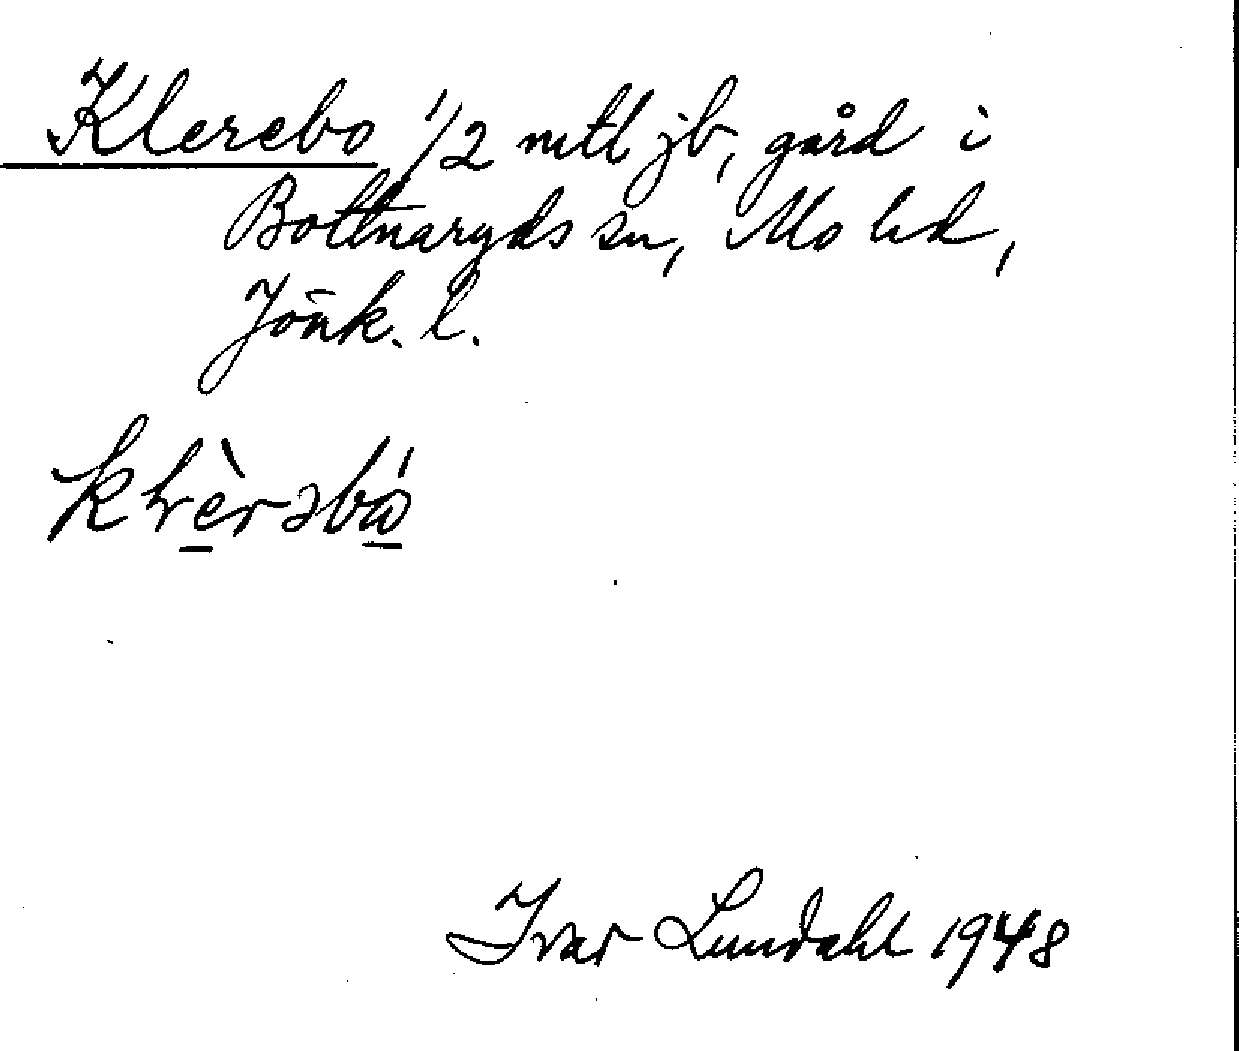 Klerebo 1/2 mtl jb, gård i
Bottnaryds sn, Mo hd,
Jönk. l.
Ivar Lundahl 1948